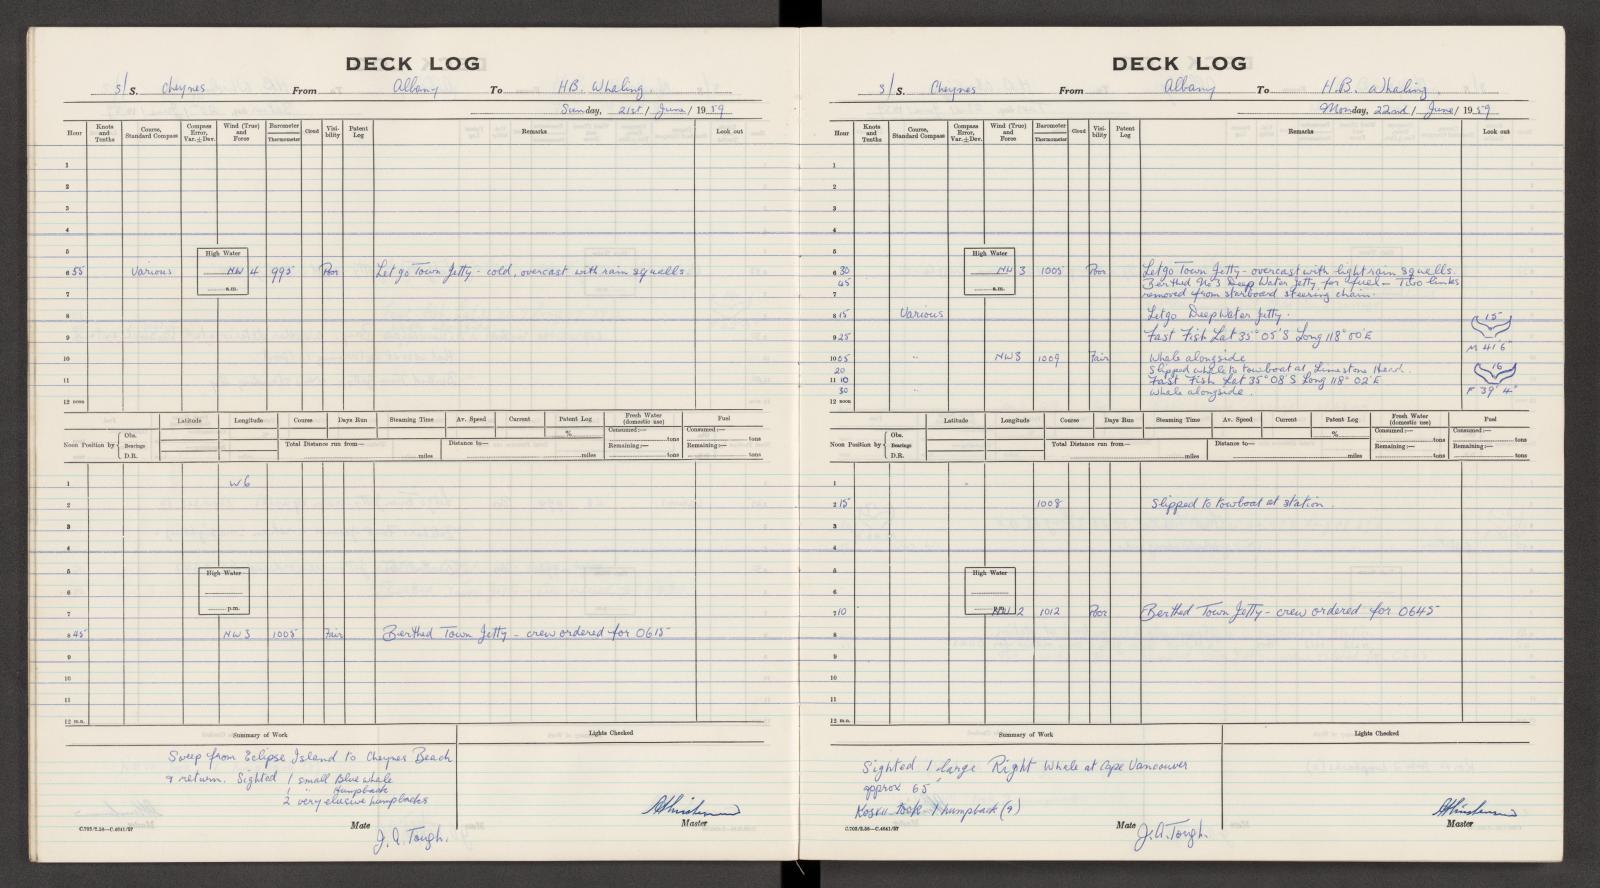 DECK LOG
S/S. Cheynes From Albany To HB. Whaling.
Sunday, 21st / June / 1959
Hour Knots and Tenths Course, Standard Compass Compass Error, Var. ± Dev. Wind (True) and Force Barometer Thermometer Cloud Visibility Patent Log Remarks Look out
1
2
3
4
5 High Water
6 55 Various NW 4 995 Poor Let go Town Jetty - cold, overcast with rain squalls.
a.m.
7
8
9
10
11
12 noon
Latitude Longitude Course Days Run Steaming Time Av. Speed Current Patent Log Fresh Water (domestic use) Fuel
Noon Position by Obs. Bearings D.R. % Consumed:— tons Consumed:— tons
Total Distance run from— miles Distance to— miles Remaining:— tons Remaining:— tons
1 W6
2
3
4
5 High Water
6
7 p.m.
8 45 NW 3 1005 Fair Berthed Town Jetty - crew ordered for 0615
9
10
11
12 m.n.
Summary of Work Lights Checked
Sweep from Eclipse Island to Cheynes Beach
& return. Sighted 1 small Blue whale
1 " Humpback
2 very elusive humpbacks
Mate J.A. Tough. Master
C.702/2.58—C.4641/57
DECK LOG
S/S. Cheynes From Albany To H.B. Whaling.
Monday, 22nd / June / 1959
Hour Knots and Tenths Course, Standard Compass Compass Error, Var. ± Dev. Wind (True) and Force Barometer Thermometer Cloud Visibility Patent Log Remarks Look out
1
2
3
4
5 High Water
6 30 NW 3 1005 Poor Let go Town Jetty - overcast with light rain squalls.
45 Berthed No 3 Deep Water Jetty for fuel - Two links
a.m.
7 removed from starboard steering chain.
8 15 Various Let go Deep Water Jetty. 15
9 25 Fast Fish Lat 35° 05' S Long 118° 00' E M 41' 6"
10 05 " NW3 1009 Fair Whale alongside
20 Slipped whale to towboat at Limestone Head. 16
11 10 Fast Fish Lat 35° 08' S Long 118° 02' E
30 " Whale alongside. F 39' 4"
12 noon
Latitude Longitude Course Days Run Steaming Time Av. Speed Current Patent Log Fresh Water (domestic use) Fuel
Noon Position by Obs. Bearings D.R. % Consumed:— tons Consumed:— tons
Total Distance run from— miles Distance to— miles Remaining:— tons Remaining:— tons
1
2 15 1008 Slipped to towboat at station.
3
4
5 High Water
6
7 10 p.m. NW 2 1012 Poor Berthed Town Jetty - crew ordered for 0645
8
9
10
11
12 m.n.
Summary of Work Lights Checked
Sighted 1 large Right Whale at Cape Vancouver
approx 65'
Kos VII took 1 humpback (9)
Mate J.A. Tough. Master
C.702/2.58—C.4641/57